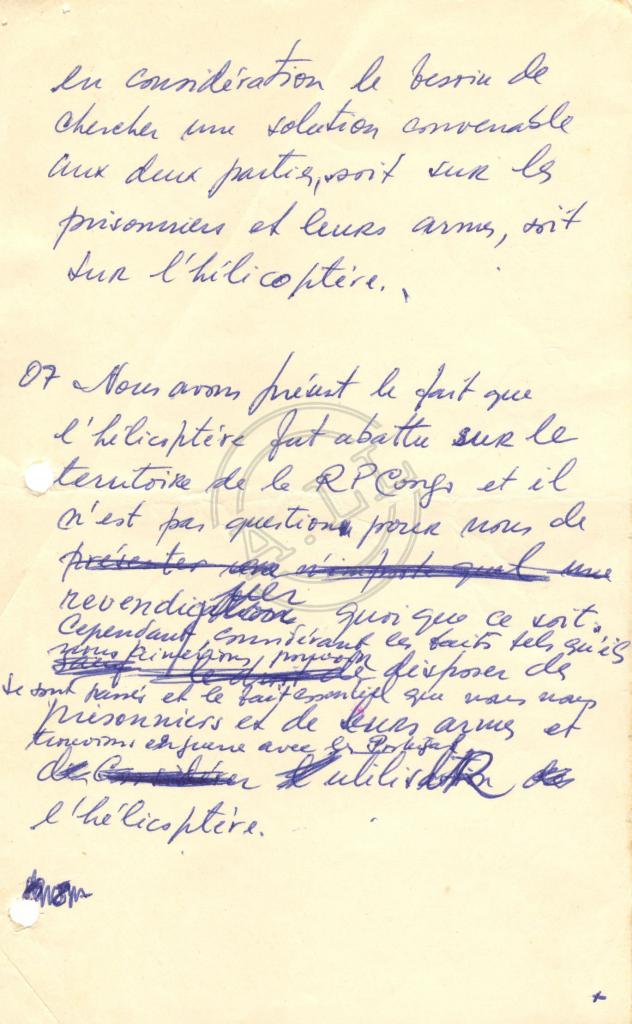 en considération le besoin de
chercher une solution convenable
aux deux parties, soit sur les
prisonniers et leurs armes, soit
sur l'hélicoptère.
07 Nous avons présent le fait que
l'hélicoptère fut abattu sur le
territoire de la RPCongo et il
n'est pas question pour nous de
présenter une n'importe quel une
revendiquer quoi que ce soit.
Cependant, considérant les faits tels qu'ils
nous aimerions pouvoir disposer de
se sont passés et le fait essentiel que nous nous
prisonniers et de leurs armes et
trouvions en guerre avec les Portugais
utiliser
l'hélicoptère.
A.L.L.